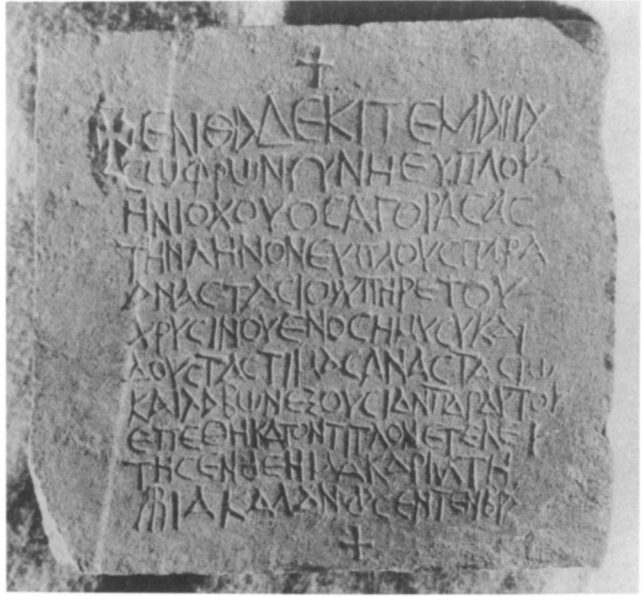 ✝
ΕΝΘΑΔΕΚΙΤΕ
CΩΦΡΩΝΓΥΝΗΕΥΠΛΟΥ
ΗΝΙΟΧΟΥΟCΑΓΟΡΑCΑC
ΤΗΝΛΗΝΟΝΕΥΠΛΟΥCΠΑΡΑ
ΑΝΑCΤΑCΙΟΥΥΠΗΡΕΤΟΥ
ΧΡΥCΙΝΟΥΕΝΟCΗΜΥCΥΚΑΙ
ΔΟΥCΤΑCΤΙΜΑCΑΝΑCΤΑCΙΩ
ΚΑΙΛΑΒΩΝΕΞΟΥCΙΑΝΠΑΡΑΥΤΟΥ
ΕΠΕΘΗΚΑΤΟΝΤΙΤΛΟΝΕΤΕΛΕΥ
ΤΗCΕΝΔΕΗΜΑΚΑΡΙΑΤΗ
ΙΑΚΑΛΑΝΔCΕΝΤΕΝΒΡ
✝